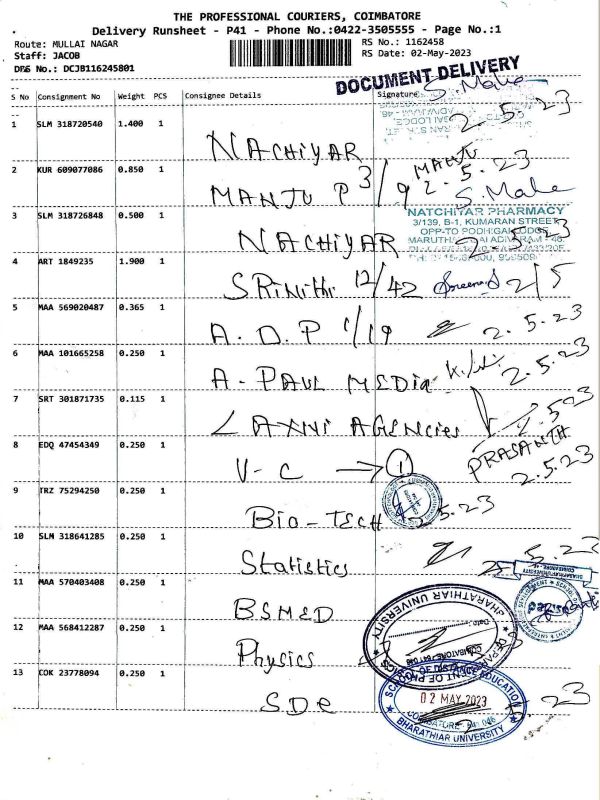 THE PROFESSIONAL COURIERS, COIMBATORE
Delivery Runsheet - P41 - Phone No.:0422-3505555 - Page No.:1
Route: MULLAI NAGAR
RS No.: 1162458
Staff: JACOB
RS Date: 02-May-2023
DRS No.: DCJB116245801
DOCUMENT DELIVERY
S No Consignment No Weight PCS Consignee Details Signature
S. Mahe
2.5.23
1 SLM 318720540 1.400 1
NACHIYAR
2 KUR 609077086 0.850 1
MANJU P 3/9 MANJU 2.5.23
S. Mahe
3 SLM 318726848 0.500 1
NATCHIYAR PHARMACY
3/139, B-1, KUMARAN STREET
NACHIYAR 2.5.23
4 ART 1849235 1.900 1
SRINITHI 12/42 2/5
5 MAA 569020487 0.365 1
A.D.P 1/19 2.5.23
6 MAA 101665258 0.250 1
A. PAUL MEDIA 2.5.23
7 SRT 301871735 0.115 1
LAXMI AGENCIES 2.5.23
8 EDQ 47454349 0.250 1
PRASANTH
V-C → 1 2.5.23
9 TRZ 75294250 0.250 1
BIO-TECH 2.5.23
10 SLM 318641285 0.250 1
Statistics 5.23
11 MAA 570403408 0.250 1
BSMED
BHARATHIAR UNIVERSITY
12 MAA 568412287 0.250 1
Physics
13 COK 23778094 0.250 1
SDE
02 MAY 2023
BHARATHIAR UNIVERSITY